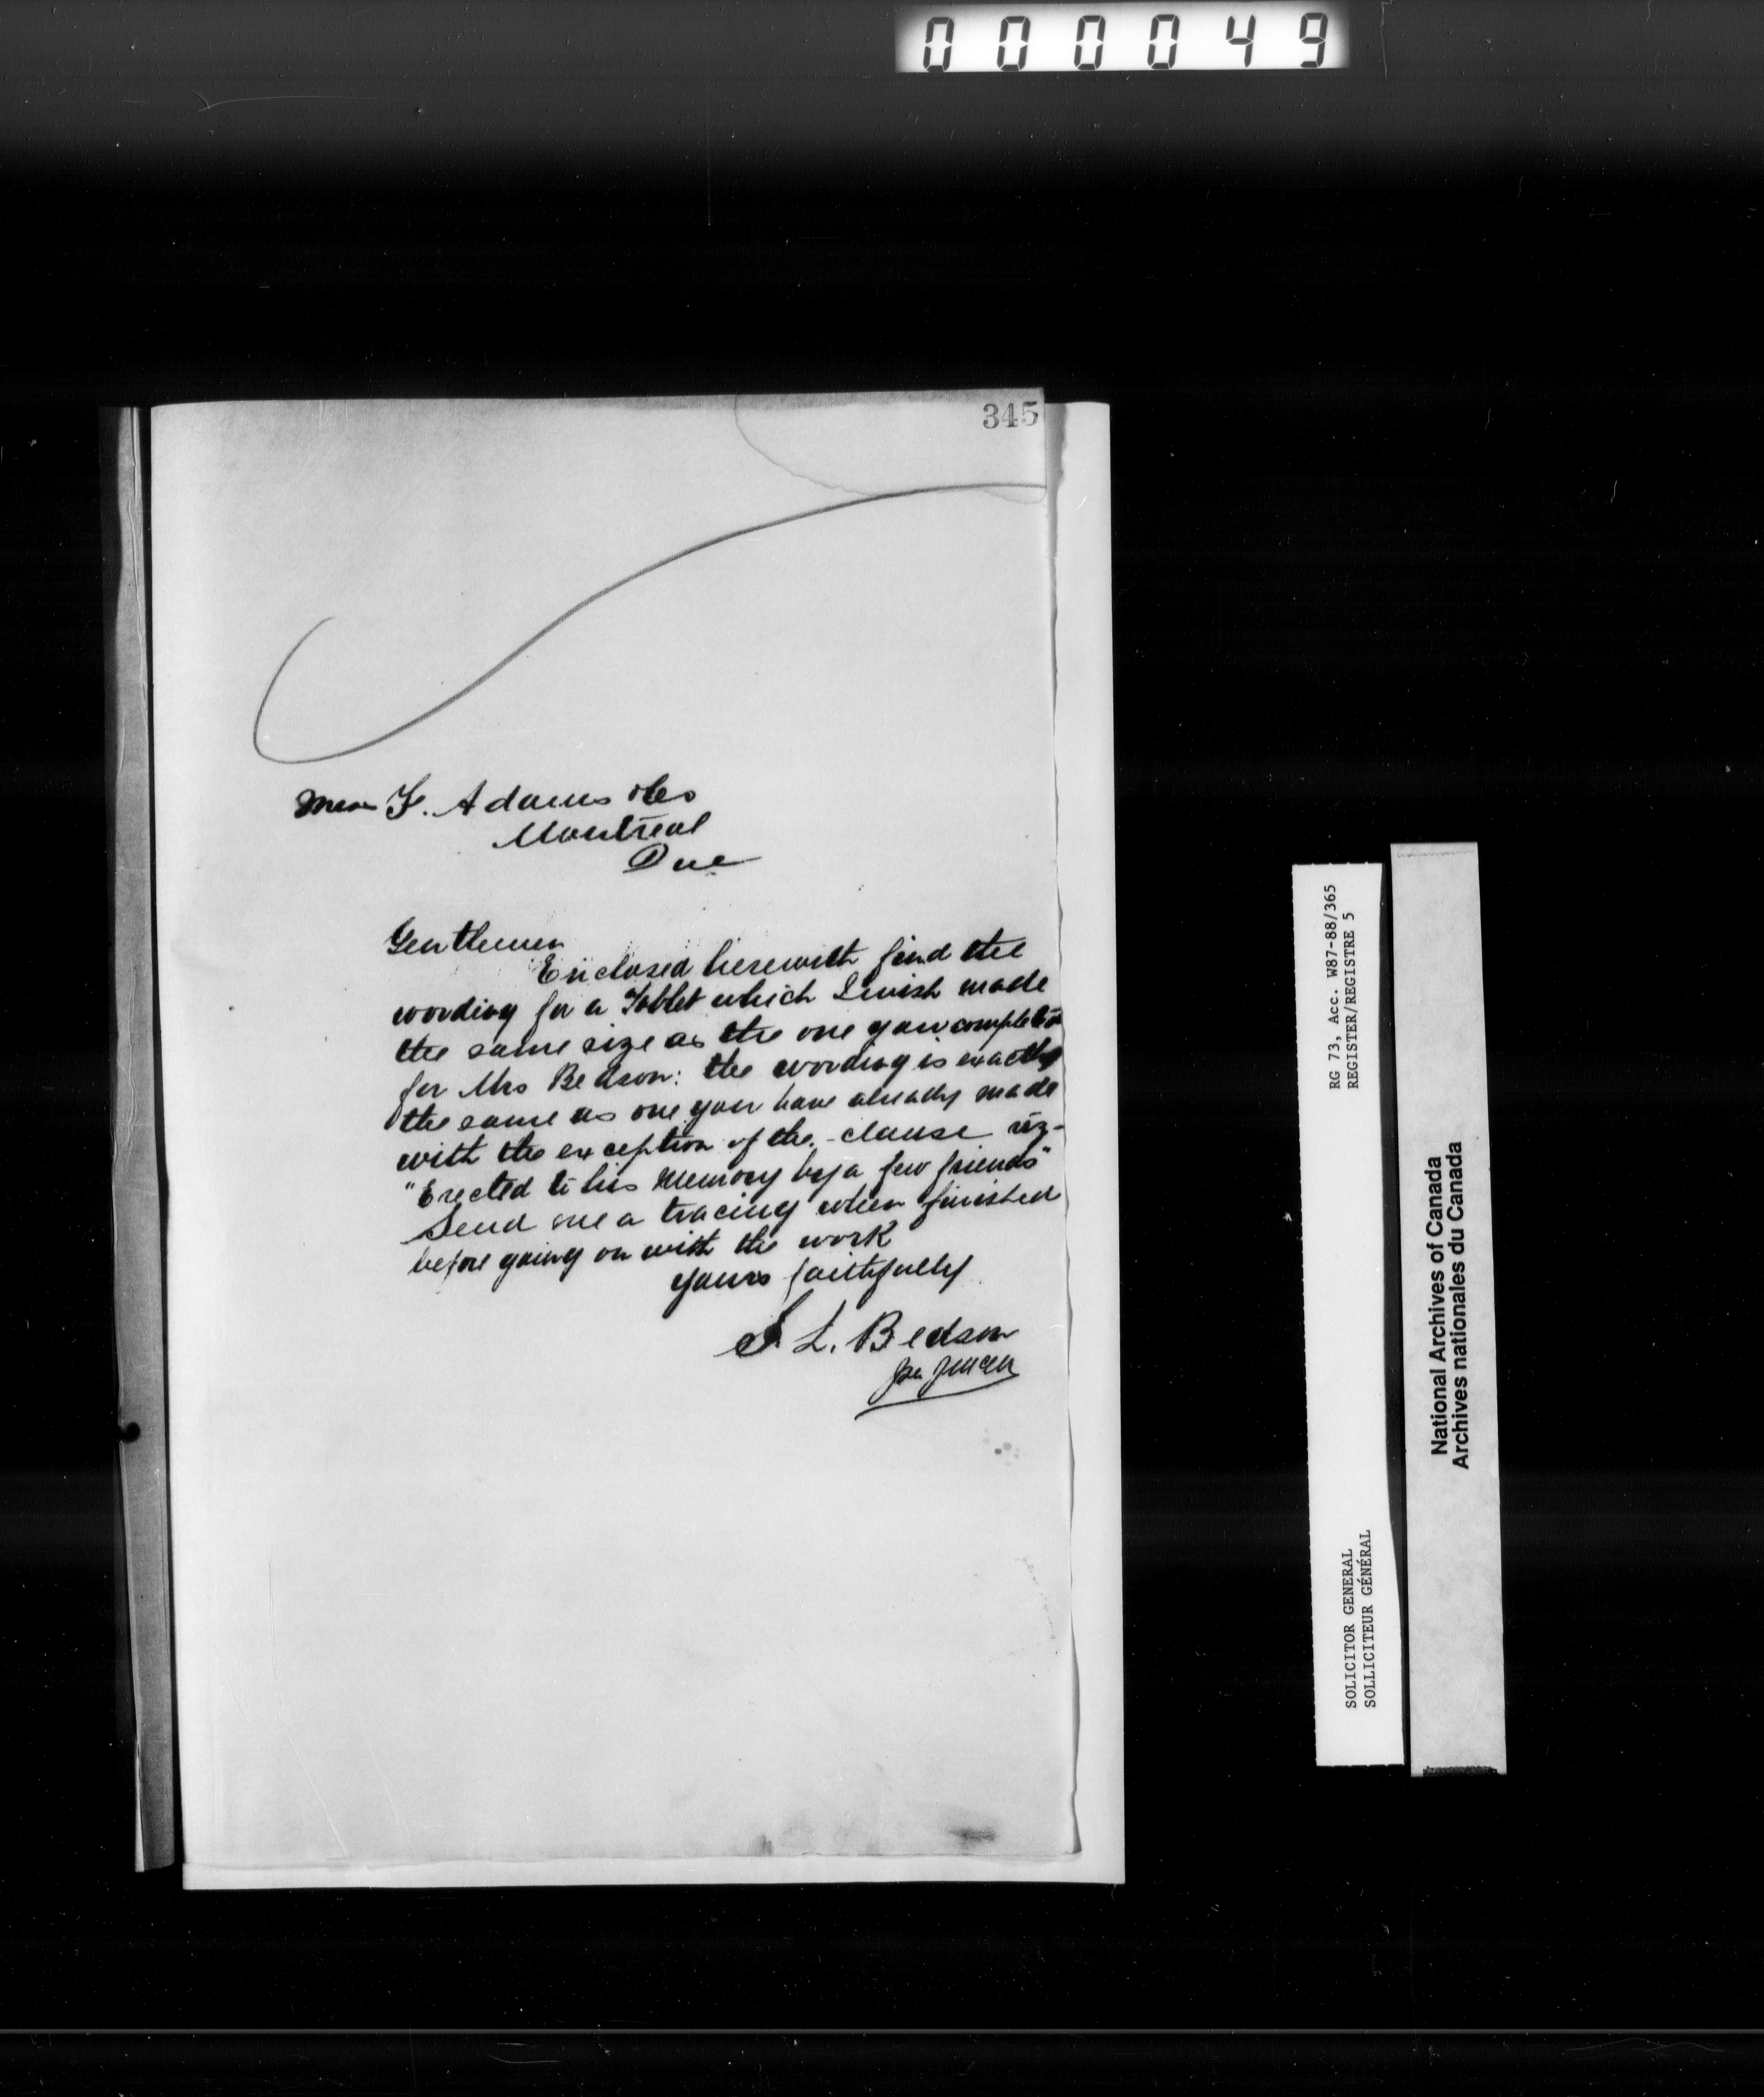 000049
345
Mess F. Adams & Co
Montreal
Que
Gentlemen
Enclosed herewith find the
wording for a Tablet which I wish made
the same size as the one you completed
for Mrs Bedson: the wording is exactly
the same as one you have already made
with the exception of the clause viz-
"Erected to his Memory by a few friends"
Send me a tracing when finished
before going on with the work
yours faithfully
S L. Bedson
per
RG 73, Acc. W87-88/365
REGISTER/REGISTRE 5
SOLICITOR GENERAL
SOLLICITEUR GÉNÉRAL
National Archives of Canada
Archives nationales du Canada